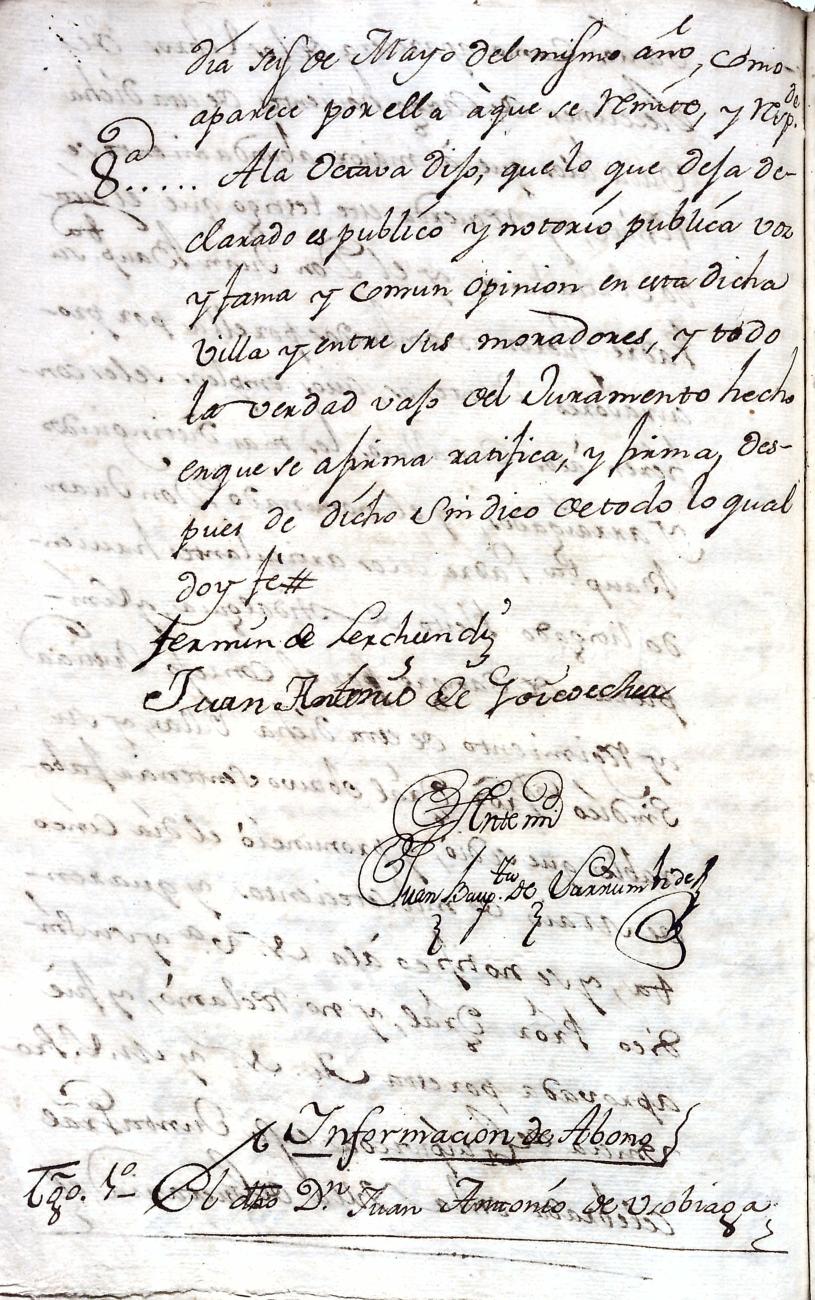 día seis de Mayo del mismo año, como
aparece por ella à que se remite, y resp.de
8.a ..... A la Octava dijo, que lo que deja de-
clarado es publico y notorio publica voz
y fama y comun opinion en esta dicha
villa y entre sus moradores, y todo
la verdad vajo del Juramento hecho
en que se afirma ratifica, y firma, des-
pues de dicho Sindico de todo lo qual
doy fe
Fermin de Lerchundi
Juan Antonio de Goicoechea
Ante mi
Juan Baup.ta de
Informacion de Abono
Tgo. 1.o El dho D.n Juan Antonio de Usobiaga